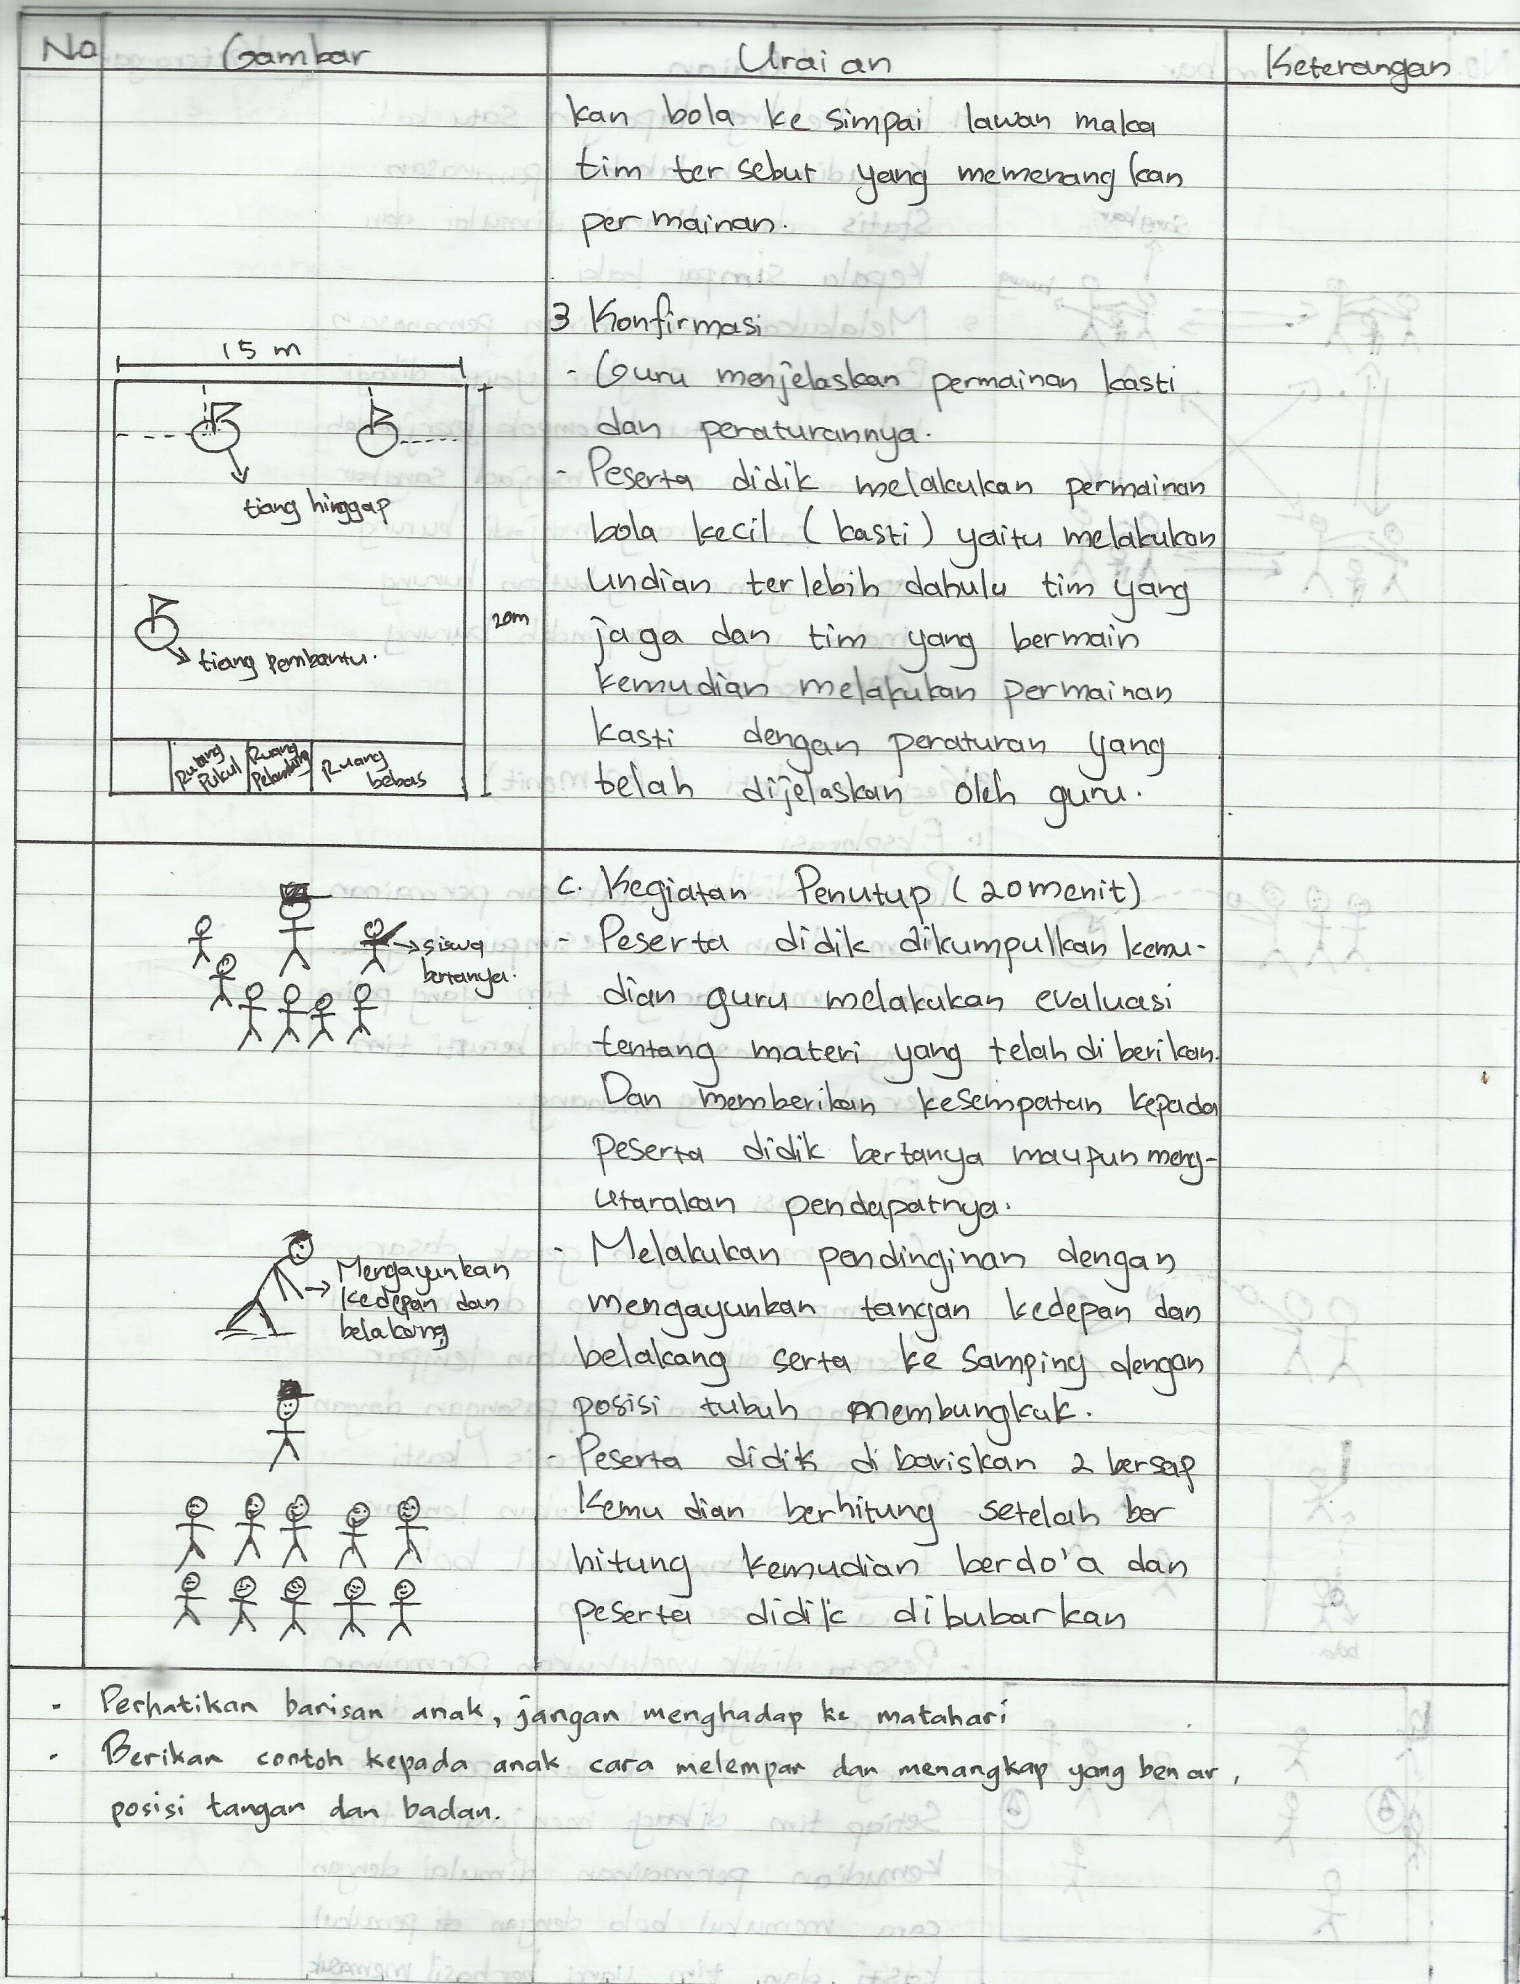 No
Gambar
Uraian
Keterangan
kan bola ke simpai lawan maka
tim tersebut yang memenangkan
permainan.
3 Konfirmasi
- Guru menjelaskan permainan kasti
dan peraturannya.
- Peserta didik melakukan permainan
bola kecil (kasti) yaitu melakukan
undian terlebih dahulu tim yang
jaga dan tim yang bermain
kemudian melakukan permainan
kasti dengan peraturan yang
telah dijelaskan oleh guru.
15 m
tiang hinggap
20m
tiang pembantu.
Ruang
Pukul
Ruang
Pelambung
Ruang
bebas
c. Kegiatan Penutup (20 menit)
- Peserta didik dikumpulkan kemu-
dian guru melakukan evaluasi
tentang materi yang telah diberikan.
Dan memberikan kesempatan kepada
peserta didik bertanya maupun meng-
utarakan pendapatnya.
- Melakukan pendinginan dengan
mengayunkan tangan kedepan dan
belakang serta ke samping dengan
posisi tubuh membungkuk.
- Peserta didik dibariskan 2 bersap
kemudian berhitung setelah ber
hitung kemudian berdo'a dan
peserta didik dibubarkan
siswa
bertanya.
Mengayunkan
kedepan dan
belakang
- Perhatikan barisan anak, jangan menghadap ke matahari
- Berikan contoh kepada anak cara melempar dan menangkap yang benar,
posisi tangan dan badan.